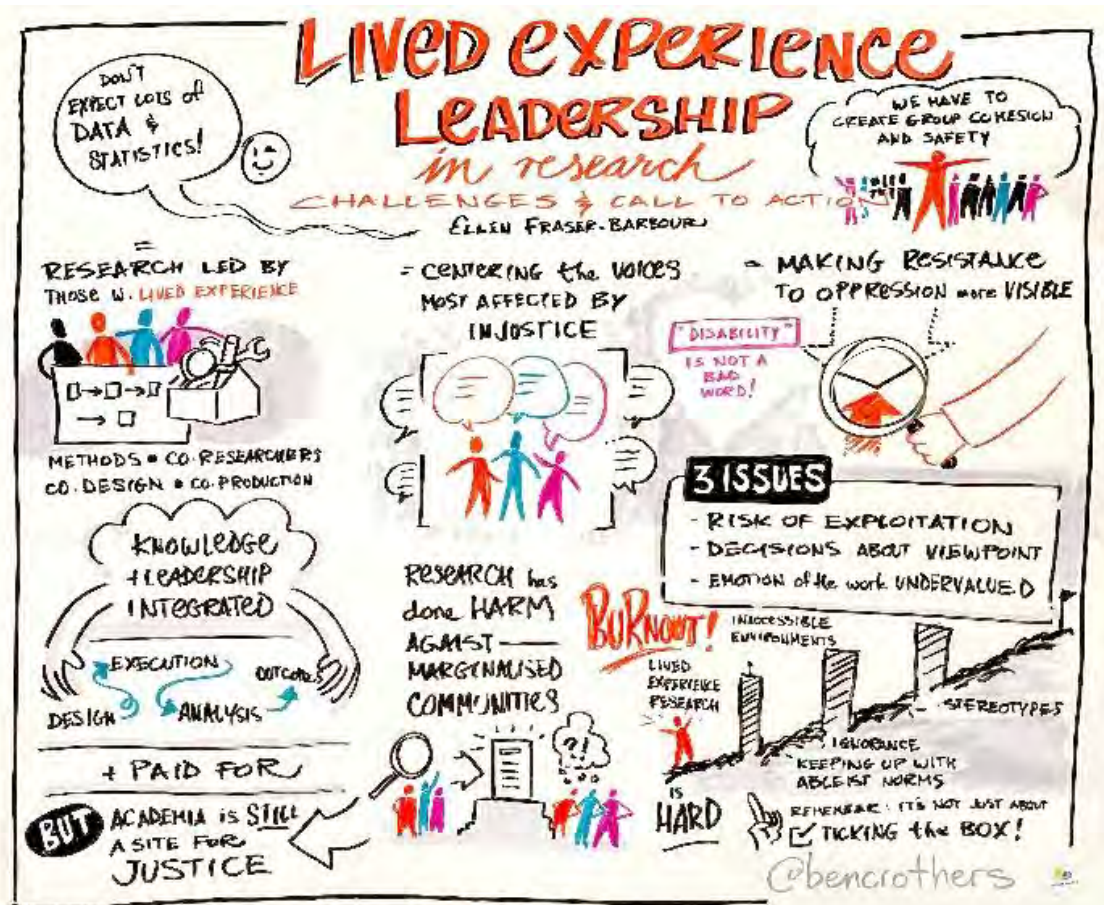 LIVED EXPERIENCE
LEADERSHIP
in research
CHALLENGES & CALL TO ACTION
ELLEN FRASER-BARBOUR
DON'T
EXPECT LOTS of
DATA &
STATISTICS!
WE HAVE TO
CREATE GROUP COHESION
AND SAFETY
=
RESEARCH LED BY
THOSE W. LIVED EXPERIENCE
METHODS • CO-RESEARCHERS
CO-DESIGN • CO-PRODUCTION
KNOWLEDGE
+ LEADERSHIP
INTEGRATED
EXECUTION
OUTCOMES
DESIGN
ANALYSIS
+ PAID FOR
BUT
ACADEMIA is STILL
A SITE FOR
JUSTICE
= CENTERING the VOICES
MOST AFFECTED BY
INJUSTICE
RESEARCH has
done HARM
AGAINST
MARGINALISED
COMMUNITIES
?!
= MAKING RESISTANCE
TO OPPRESSION more VISIBLE
"DISABILITY"
IS NOT A
BAD
WORD!
3 ISSUES
- RISK OF EXPLOITATION
- DECISIONS ABOUT VIEWPOINT
- EMOTION of the work UNDERVALUED
BURNOUT!
INACCESSIBLE
ENVIRONMENTS
LIVED
EXPERIENCE
RESEARCH
IS
HARD
STEREOTYPES
IGNORANCE
KEEPING UP WITH
ABLEIST NORMS
REMEMBER: IT'S NOT JUST ABOUT
TICKING the BOX!
@bencrothers